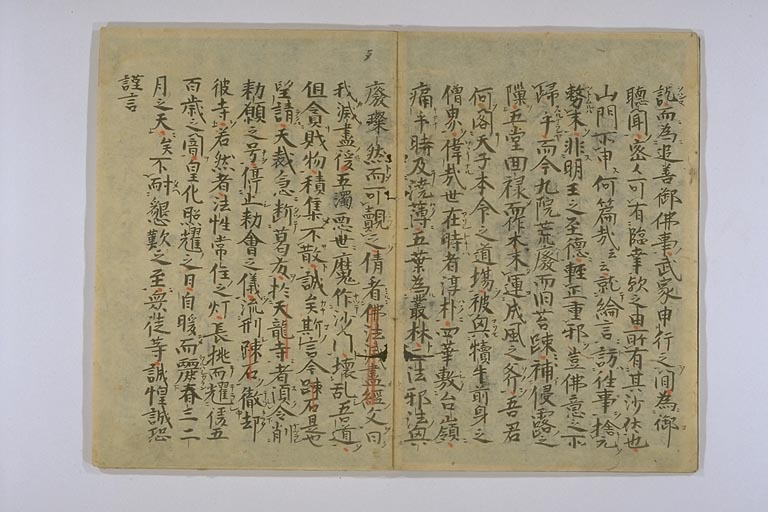 説而為追善御佛事武家申行之間為御
聴聞密人可有臨幸欤之由所有其沙伏也
山門亦申何篇哉云就綸言訪往事捨元
務末非明王之至徳軽正重邪豈佛意之所
歸乎而今九院荒廢而旧苔踈補侵露之
隟五堂回禄而作木未運成風之斧吾君
何閣天子本命之道場被與犢牛前身之
僧界偉哉世在時者淳朴四華敷台嶺
痛乎時及澆薄五葉為叢林正法邪法與
廢璨然而可觀之倩者佛法滅盡經文曰
我滅盡後五濁悪世魔作沙門壊乱吾道
但貪賊物積集不散誠矣斯言今踈石是也
望請天裁急断葛方於天龍寺者須令削
勅願之号停止勅會之儀流刑踈石徹却
彼寺若然者法性常住之灯長挑而耀後五
百歳之闇皇化照耀之日自暖而麗春三二
月之天矣不耐懇歎之至衆徒等誠惶誠恐
謹言